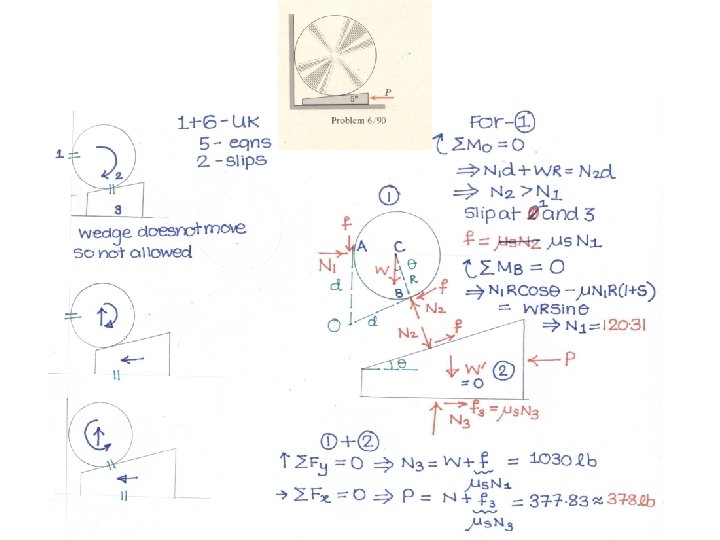 5°
P
Problem 6/90
1+6-UK
5-eqns
2-slips
1
2
3
wedge doesnotmove
so not allowed
For-①
↺ΣMo=0
⇒N1d+WR=N2d
⇒ N2>N1
slip at 1 and 3
f = μsN2 μsN1
↺ΣMB=0
⇒N1Rcosθ-μN1R(1+S)
= WRsinθ
⇒N1=120.31
①
f
A
C
N1
W
θ
R
d
B
f
N2
O
d
N2
f
θ
W'
=0
②
P
N3
f3=μsN3
①+②
↑ΣFy=0 ⇒ N3=W+f = 1030lb
μsN1
→ΣFx=0 ⇒ P= N+f3 = 377.83≈378lb
μsN3